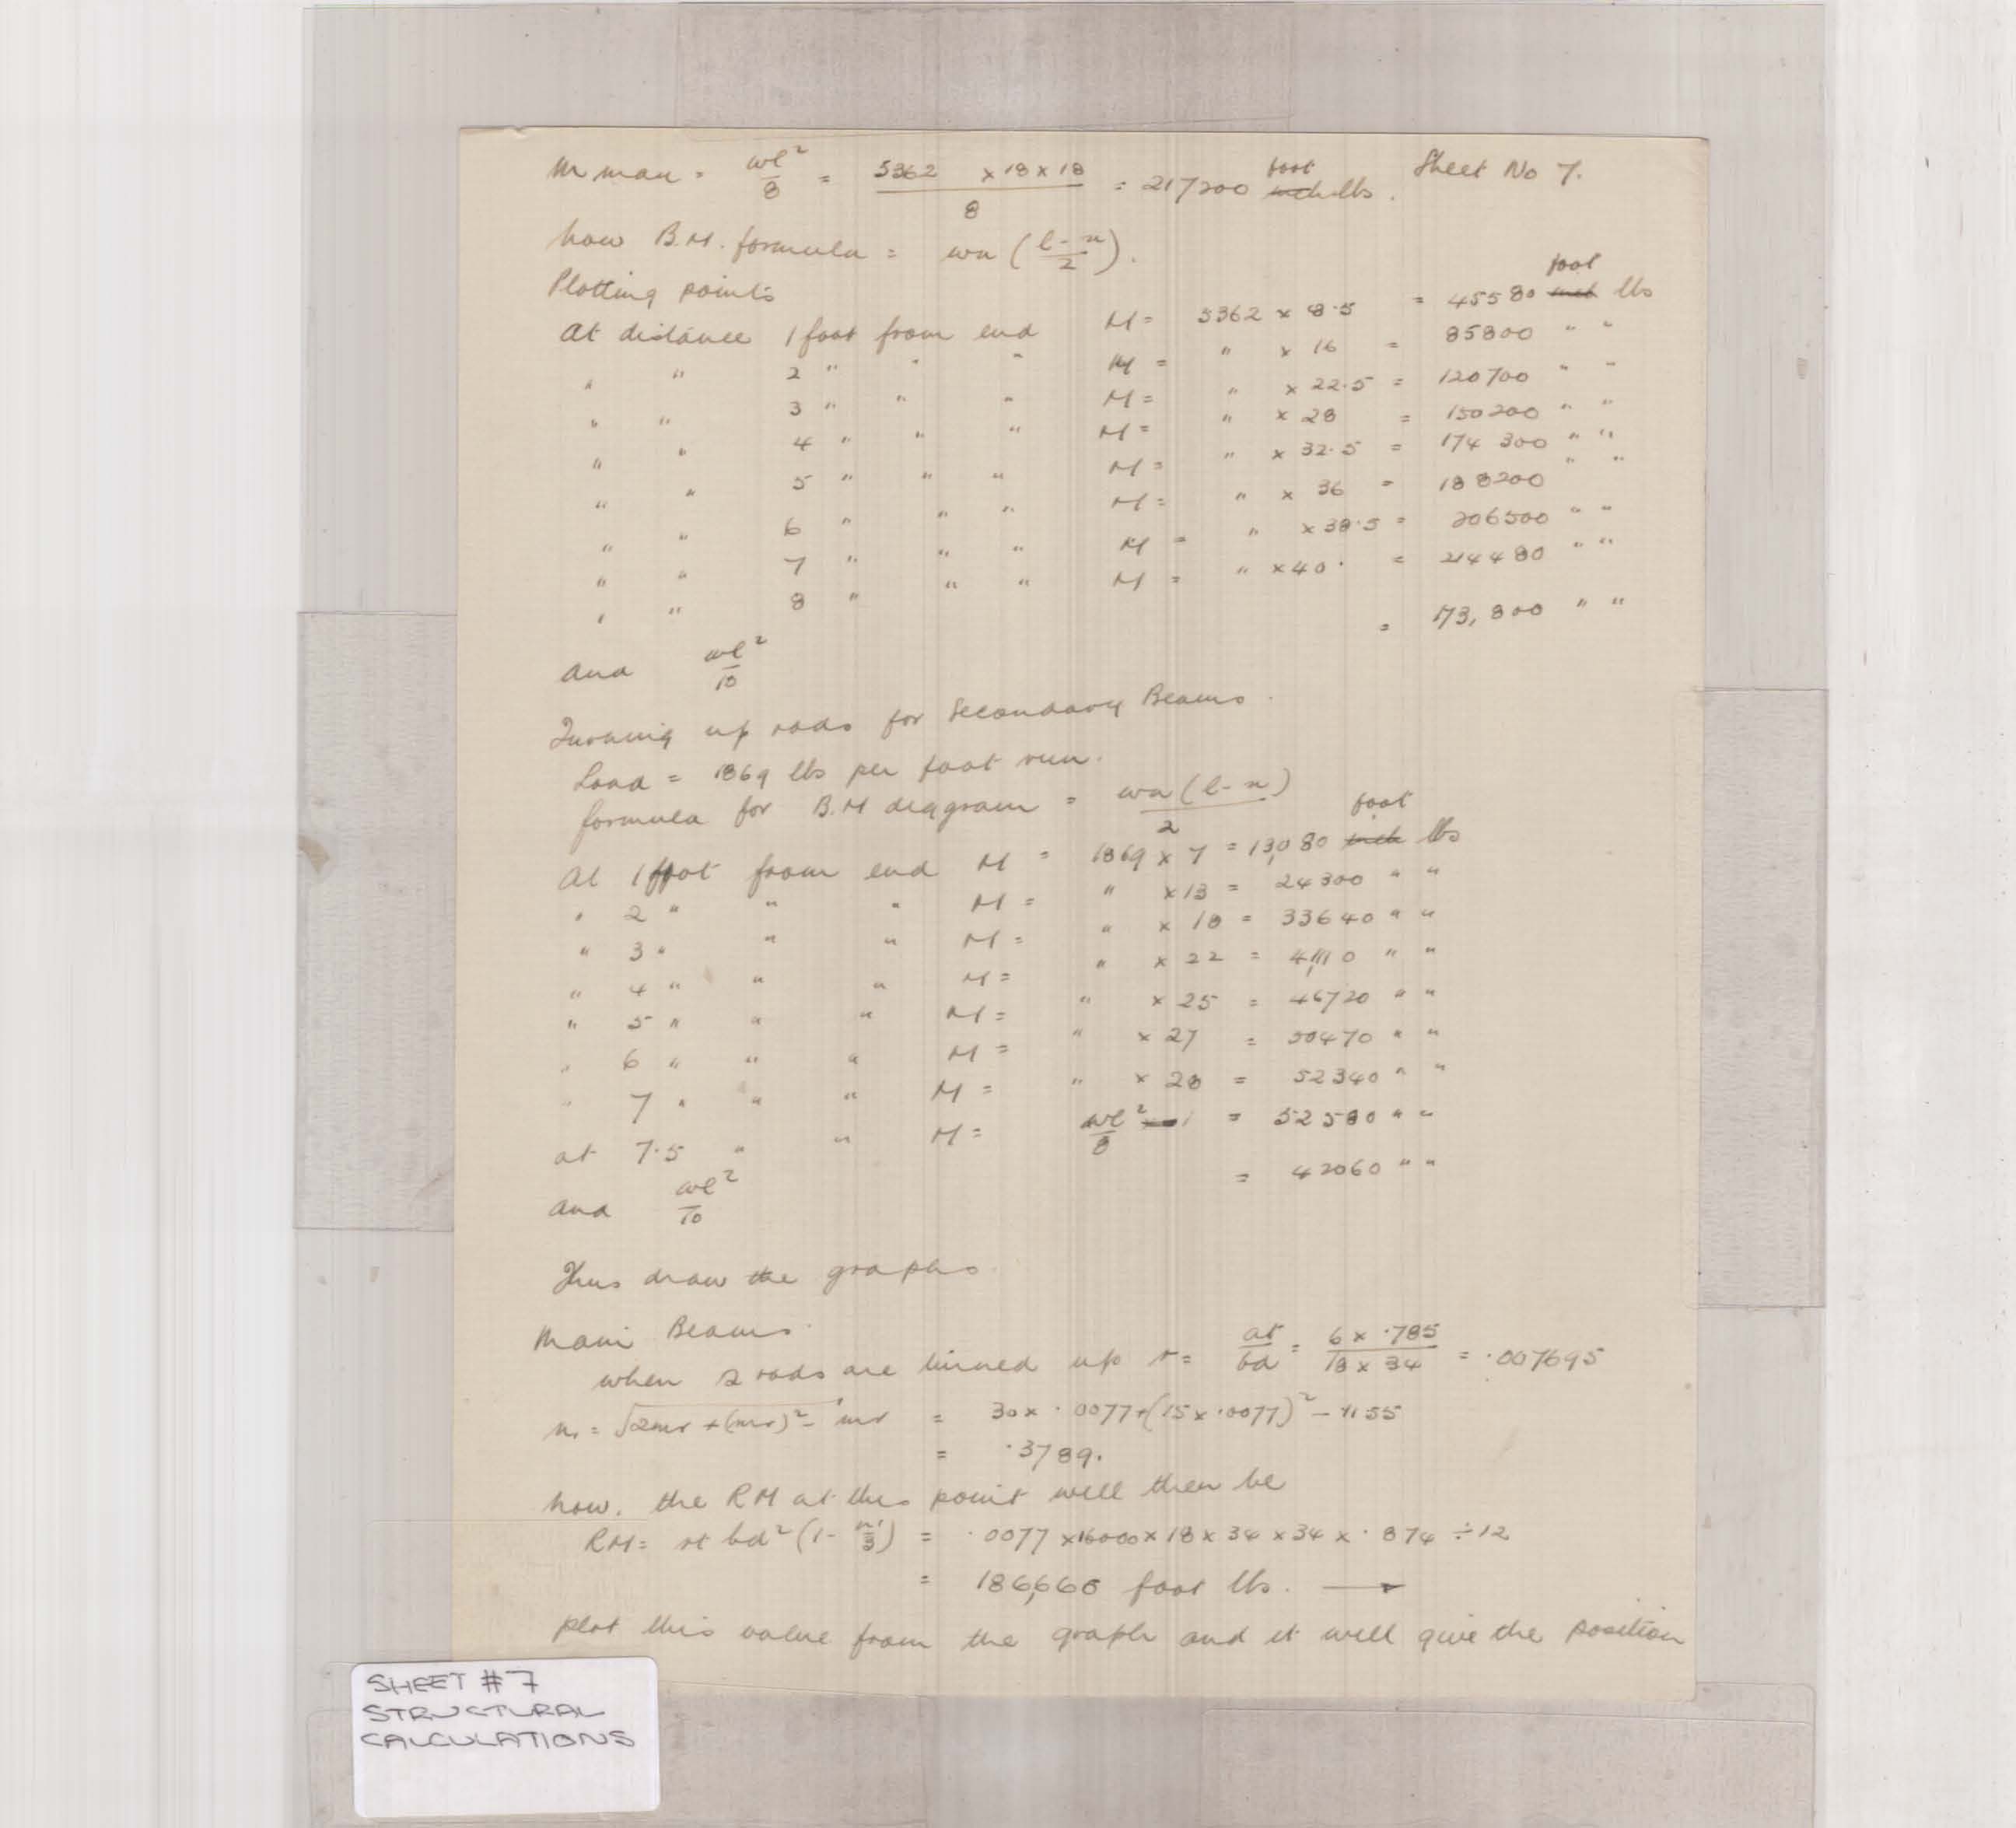 M max = wl²/8 = 5362 × 18 × 18 / 8 = 217200 foot inch lbs. Sheet No 7.
Now B.M. formula = wx (l-x/2).
Plotting points
At distance 1 foot from end M = 5362 × 8.5 = 45580 foot inch lbs
" " 2 " " " M = " × 16 = 85800 " "
" " 3 " " " M = " × 22.5 = 120700 " "
" " 4 " " " M = " × 28 = 150200 " "
" " 5 " " " M = " × 32.5 = 174300 " "
" " 6 " " " M = " × 36 = 188200 " "
" " 7 " " " M = " × 38.5 = 206500 " "
" " 8 " " " M = " × 40. = 214480 " "
and wl²/10 = 173,800 " "
Turning up rods for Secondary Beams.
Load = 1869 lbs per foot run.
formula for B.M diagram = wx(l-x)/2
At 1 foot from end M = 1869 × 7 = 13,080 foot inch lbs
" 2 " " " M = " × 13 = 24300 " "
" 3 " " " M = " × 18 = 33640 " "
" 4 " " " M = " × 22 = 41,110 " "
" 5 " " " M = " × 25 = 46720 " "
" 6 " " " M = " × 27 = 50470 " "
" 7 " " " M = " × 28 = 52340 " "
at 7.5 " " M = wl²/8 = 52580 " "
and wl²/10 = 42060 " "
Thus draw the graphs.
Main Beams.
when 2 rods are turned up r = at/bd = 6 × .785 / 18 × 34 = .007695
n₁ = √2mr + (mr)² - mr = 30 × .0077 + (15 × .0077)² - .1155
= .3789.
Now, the RM at this point will then be
RM = rt bd² (1 - n₁/3) = .0077 × 16000 × 18 × 34 × 34 × .874 ÷ 12
= 186,660 foot lbs. →
plot this value from the graph and it will give the position
SHEET #7
STRUCTURAL
CALCULATIONS